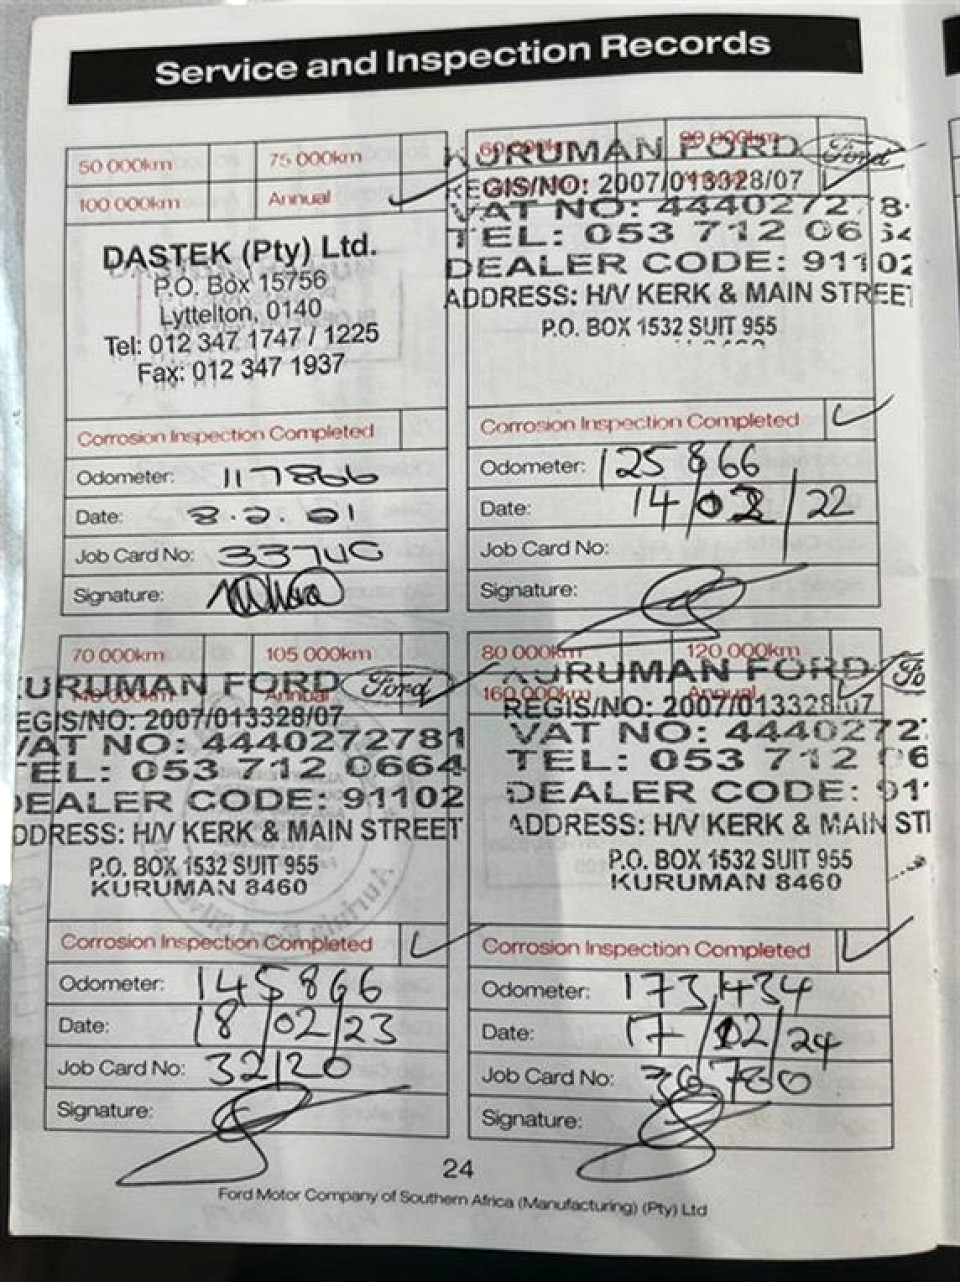 Service and Inspection Records
50 000km 75 000km
100 000km Annual
DASTEK (Pty) Ltd.
P.O. Box 15756
Lyttelton, 0140
Tel: 012 347 1747 / 1225
Fax: 012 347 1937
Corrosion Inspection Completed
Odometer: 117866
Date: 8.2.
Job Card No:
Signature:
60 000km 90 000km
KURUMAN FORD Ford
REGIS/NO: 2007/013328/07
VAT NO: 444027278
TEL: 053 712 0664
DEALER CODE: 91102
ADDRESS: H/V KERK & MAIN STREET
P.O. BOX 1532 SUIT 955
Corrosion Inspection Completed
Odometer: 125866
Date: 14/02/22
Job Card No:
Signature:
70 000km 105 000km
KURUMAN FORD Ford
140 000km Annual
REGIS/NO: 2007/013328/07
VAT NO: 4440272781
TEL: 053 712 0664
DEALER CODE: 91102
ADDRESS: H/V KERK & MAIN STREET
P.O. BOX 1532 SUIT 955
KURUMAN 8460
Corrosion Inspection Completed
Odometer: 145866
Date: 18/02/23
Job Card No: 32120
Signature:
80 000km 120 000km
KURUMAN FORD Fo
160 000km Annual
REGIS/NO: 2007/013328/07
VAT NO: 4440272
TEL: 053 712 06
DEALER CODE: 911
ADDRESS: H/V KERK & MAIN STI
P.O. BOX 1532 SUIT 955
KURUMAN 8460
Corrosion Inspection Completed
Odometer: 173,434
Date: 17/02/24
Job Card No: 36780
Signature:
24
Ford Motor Company of Southern Africa (Manufacturing) (Pty) Ltd